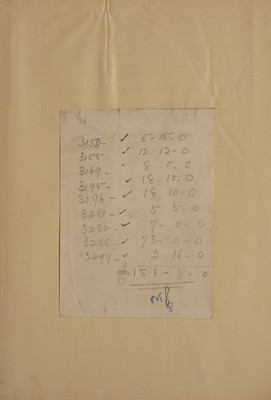 3150- ✓ 5-15-0
3155- ✓ 12 12-0
3169- " 8 0-0
3195- ✓ 18-10-0
3196- ✓ 18 10-0
3281-✓ 5-5-0
3282-✓ 7-0-0
3286-✓ 73-0-0
3299-✓ 2 16-0
151-8-0